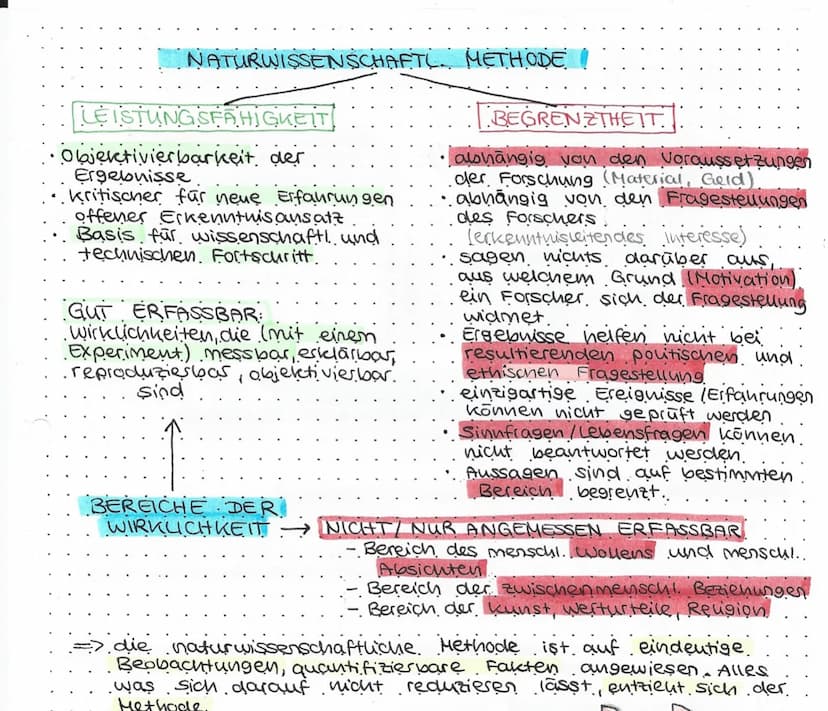 NATURWISSENSCHAFTL. METHODE
LEISTUNGSFÄHIGKEIT
· Objektivierbarkeit der
Ergebnisse
· kritischer für neue Erfahrungen
offener Erkenntnisansatz
· Basis für wissenschaftl. und
technischen Fortschritt
GUT ERFASSBAR:
Wirklichkeiten, die (mit einem
Experiment) messbar, erklärbar,
reproduzierbar, objektivierbar
sind
BEGRENZTHEIT
· abhängig von den Voraussetzungen
der Forschung (Material, Geld)
· abhängig von den Fragestellungen
des Forschers
(erkenntnisleitendes Interesse)
· sagen nichts darüber aus,
aus welchem Grund (Motivation)
ein Forscher sich der Fragestellung
widmet
· Ergebnisse helfen nicht bei
resultierenden politischen und
ethischen Fragestellung
· einzigartige Ereignisse/Erfahrungen
können nicht geprüft werden
· Sinnfragen/Lebensfragen können
nicht beantwortet werden
· Aussagen sind auf bestimmten
Bereich begrenzt.
BEREICHE DER
WIRKLICHKEIT → NICHT/NUR ANGEMESSEN ERFASSBAR
- Bereich des menschl. Wollens und menschl.
Absichten
- Bereich der zwischenmenschl. Beziehungen
- Bereich der Kunst, Werturteile, Religion
=> die naturwissenschaftliche Methode ist auf eindeutige
Beobachtungen, quantifizierbare Fakten angewiesen. Alles
was sich darauf nicht reduzieren lässt, entzieht sich der
Methode.